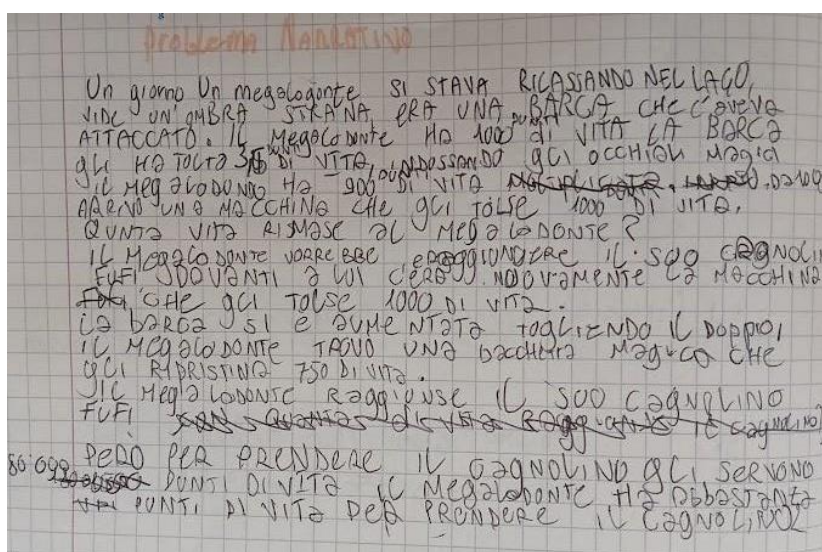 Problema Narrativo
Un giorno Un megalogonte SI STAVA RICASSANDO NEL LAGO,
VIDE UN'OMBRA STRANA, ERA UNA BARCA CHE l'aveva
ATTACCATO. IL MEGALODONTE HA 1000 PUNTI di VITA LA BARCA
gli HA TOLTO DI VITA, INDOSSANDO gli OCCHIALI MAGICI
IL MEGALODONDO HA 900 DI VITA
ARRIVO UNA MACCHINA CHE gLI TOLSE 1000 DI VITA.
QUNTA VITA RIMASE AL MEGALODONTE?
IL MEGALODONTE VORREBBE RAGGIUNGERE IL SUO CAGNOLI
FUFI DAVANTI A LUI C'ERA NUOVAMENTE LA MACCHINA
CHE gLI TOLSE 1000 DI VITA.
LA BARCA SI E AUMENTATA TOGLIENDO IL DOPPIO,
IL MEGALODONTE TROVO UNA BACCHETTA MAGICA CHE
gLI RIPRISTINA 750 DI VITA.
IL MEGLALODONTE RAGGIUNSE IL SUO CAGNOLINO
FUFI
PERO PER PRENDERE IL CAGNOLINO gLI SERVONO
80'099 PUNTI DI VITA IL MEGALODONTE HA ABBASTANZA
PUNTI DI VITA PER PRENDERE IL CAGNOLINO?